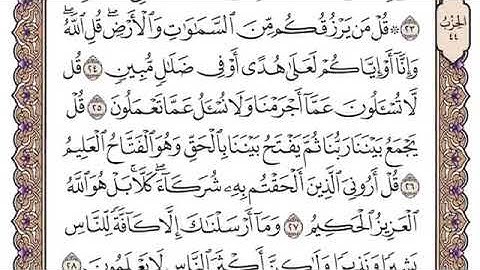 ﴿٢٣﴾ ۞ قُلْ مَن يَرْزُقُكُم مِّنَ ٱلسَّمَٰوَٰتِ وَٱلْأَرْضِۖ قُلِ ٱللَّهُۖ
الحزب
٤٤
وَإِنَّآ أَوْ إِيَّاكُمْ لَعَلَىٰ هُدًى أَوْ فِى ضَلَٰلٍ مُّبِينٍ ﴿٢٤﴾ قُل
لَّا تُسْـَٔلُونَ عَمَّآ أَجْرَمْنَا وَلَا نُسْـَٔلُ عَمَّا تَعْمَلُونَ ﴿٢٥﴾ قُلْ
يَجْمَعُ بَيْنَنَا رَبُّنَا ثُمَّ يَفْتَحُ بَيْنَنَا بِٱلْحَقِّ وَهُوَ ٱلْفَتَّاحُ ٱلْعَلِيمُ
﴿٢٦﴾ قُلْ أَرُونِىَ ٱلَّذِينَ أَلْحَقْتُم بِهِۦ شُرَكَآءَۖ كَلَّاۚ بَلْ هُوَ ٱللَّهُ
ٱلْعَزِيزُ ٱلْحَكِيمُ ﴿٢٧﴾ وَمَآ أَرْسَلْنَٰكَ إِلَّا كَآفَّةً لِّلنَّاسِ
بَشِيرًا وَنَذِيرًا وَلَٰكِنَّ أَكْثَرَ ٱلنَّاسِ لَا يَعْلَمُونَ ﴿٢٨﴾